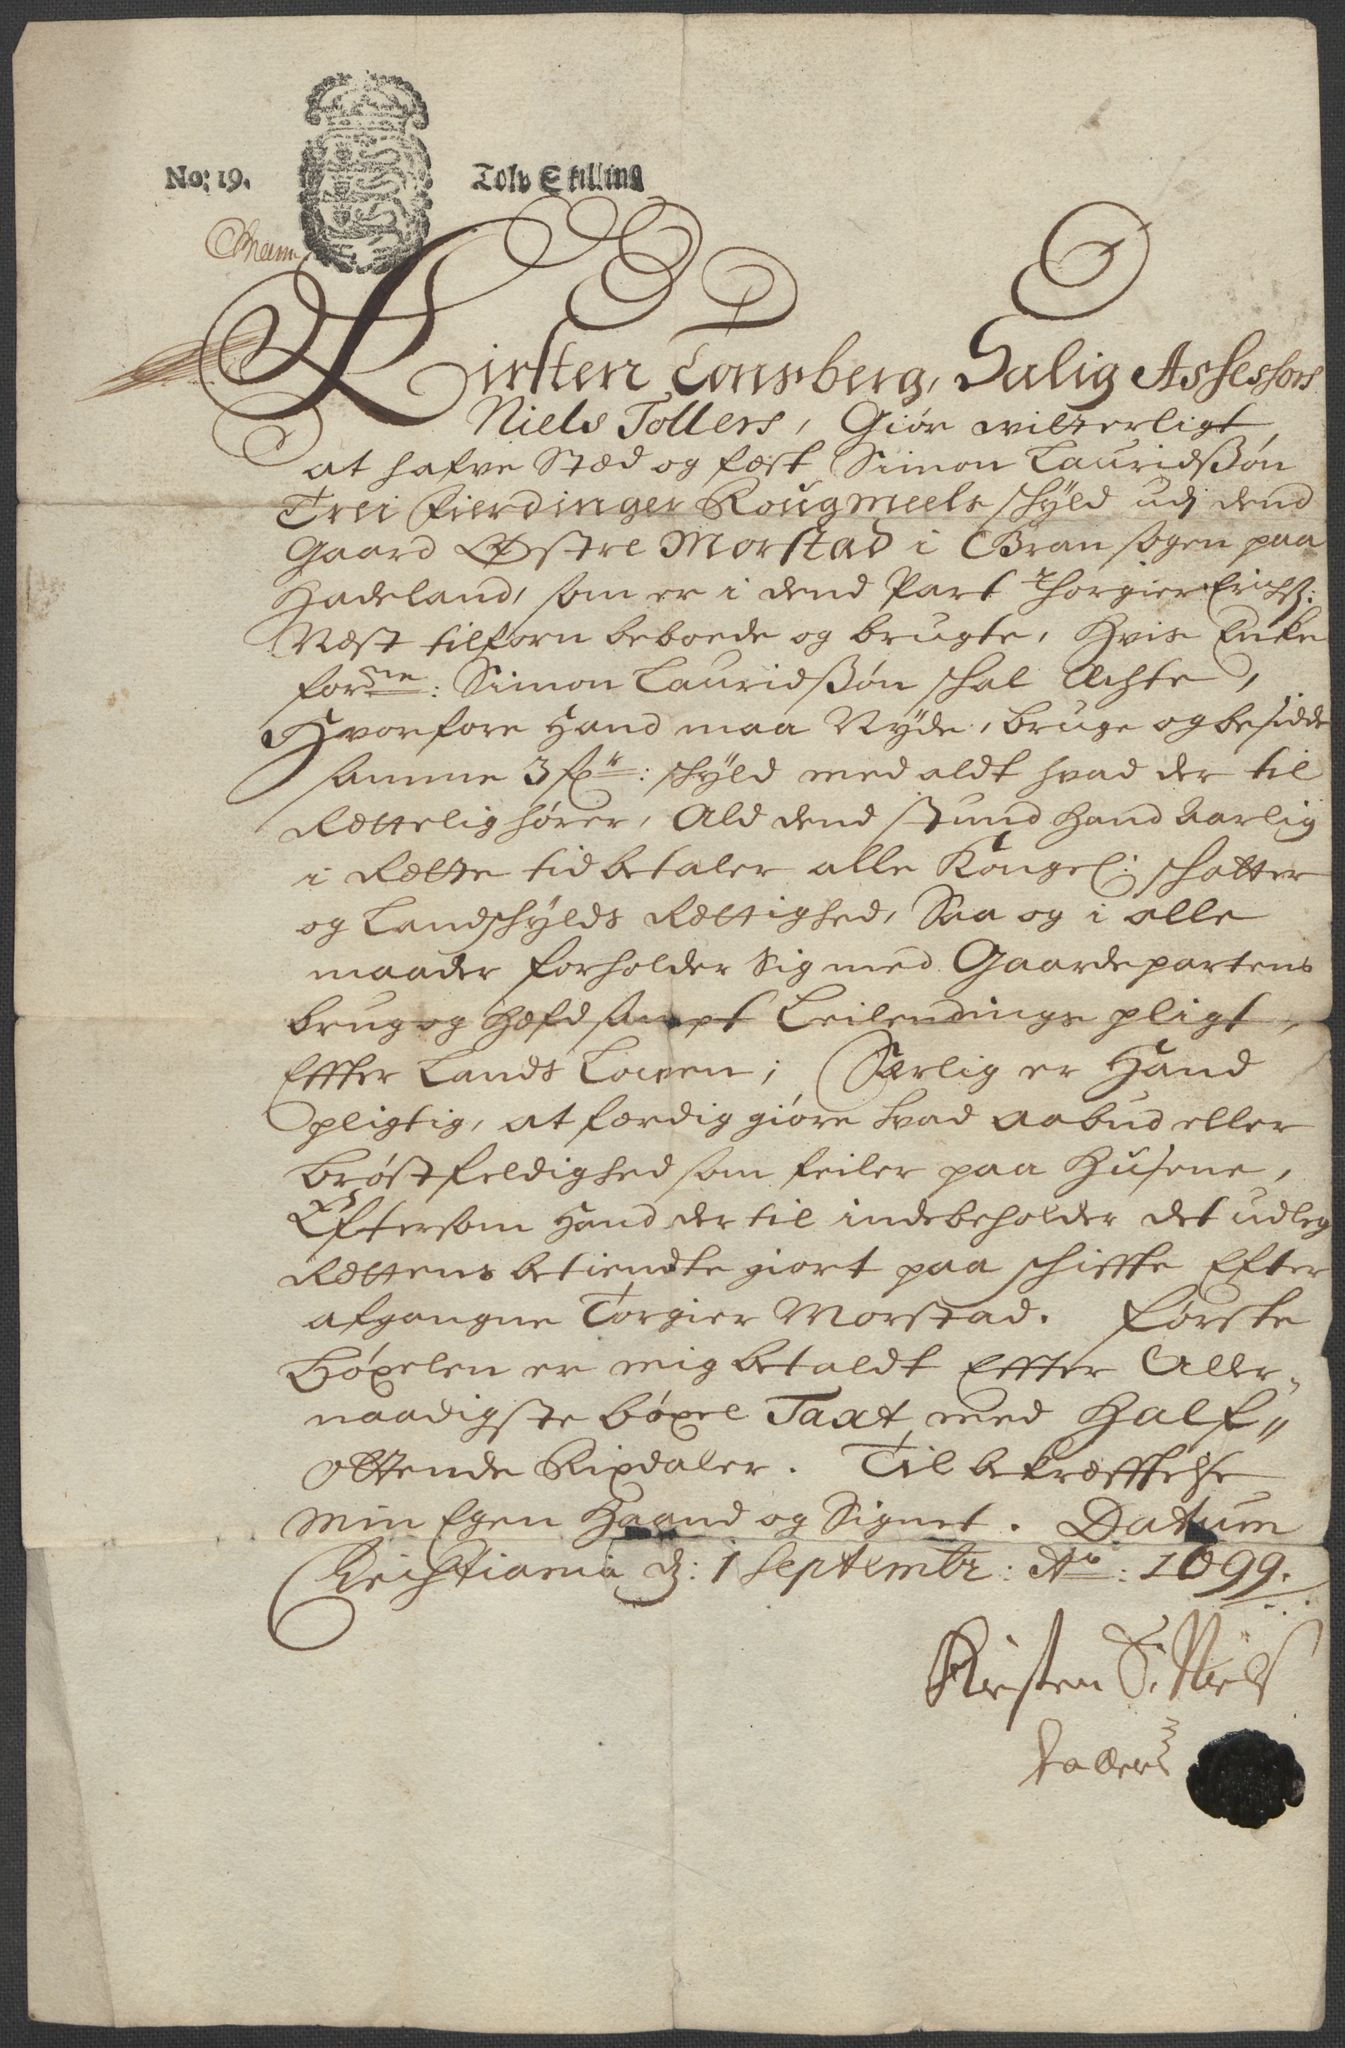 No: 19. Tolv Skilling
Kirsten Tonsberg, Salig Assessors
Niels Tollers, Giør witterligt,
at hafve Sted og fæst Simon Lauridßøn
Trei Fierdinger Rougmeels schyld udj dend
Gaard Østre Morstad i Gran sogen paa
Hadeland, som er i dend Part Thorgier Erichß:
Næst tilforn beboede og brugte, Hvis Encke
forne: Simon Lauridßøn schal Echte,
Hvorfore Hand maa Nyde, bruge og besidde
samme 3 fr: schyld med aldt hvad der til
Rættelig hører, Ald dend stund Hand Aarlig
i Rætte tid betaler alle Kongel: schatter
og Landschylds Rættighed, Saa og i alle
maader forholder Sig med Gaardepartens
brug og Hæfd sampt Leilendings pligt,
Effter Lands Lowen; Særlig er Hand
pligtig, at færdig giøre hvad Aabud eller
brøstfeldighed som feiler paa Husene,
Eftersom Hand der til indebeholder det udleg
Rættens betiendte giort paa schiffte Efter
afgangne Torgier Morstad. Første
Böxelen er mig betaldt Effter Aller-
naadigste böxel Taxt med Half-
Ottende Rixdaler. Til bekræfftelse
min Egen Haand og Signet. Datum
Christiania d: 1 Septembr: Ao: 1699.
Kirsten S. Niels
Tollers